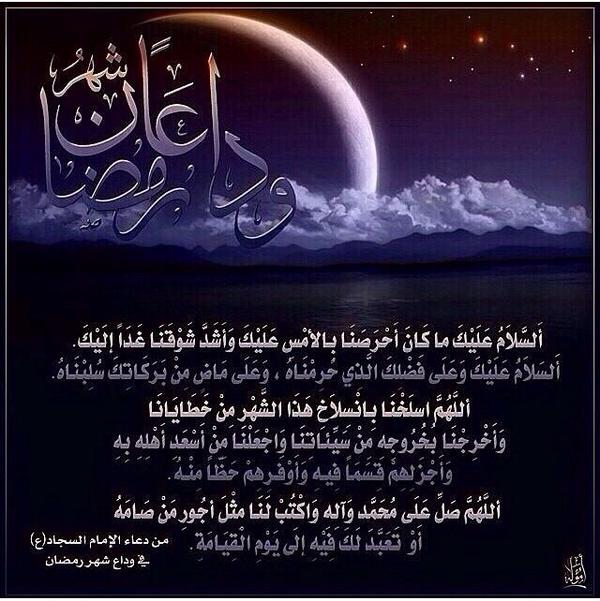 وداعاً شهر رمضان
اَلسَّلاَمُ عَلَيْكَ ما كَانَ اَحْرَصَنَا بِالأَمْسِ عَلَيْكَ وَأَشَدَّ شَوْقَنَا غَدَاً إلَيْكَ.
أَلسَلاَمُ عَلَيْكَ وَعَلَى فَضْلِكَ الَّذِي حُرِمْنَاهُ ، وَعَلَى مَاضٍ مِنْ بَرَكَاتِكَ سُلِبْنَاهُ.
أَللَّهُمَّ اسلَخْنَا بِانْسِلاَخِ هَذَا الشَّهْرِ مِنْ خَطَايَانَا
وَأَخْرِجْنَا بُخُرُوجِهِ مِنْ سَيِّئاتِنَا وَاجْعَلْنَا مِنْ أَسْعَدِ أَهْلِهِ بِهِ
وَأَجْزَلِهِمْ قِسَمَاً فِيهِ وَأَوْفَرِهِمْ حَظّاً مِنْهُ.
أَللَّهُمَّ صَلِّ عَلَى مُحَمَّد وَآلِهِ وَاكْتُبْ لَنَا مِثْلَ أجُورِ مَنْ صَامَهُ
أَوْ تَعَبَّدَ لَكَ فَيْهِ إلى يَوْمِ الْقِيَامَةِ.
من دعاء الإمام السجاد(ع)
في وداع شهر رمضان